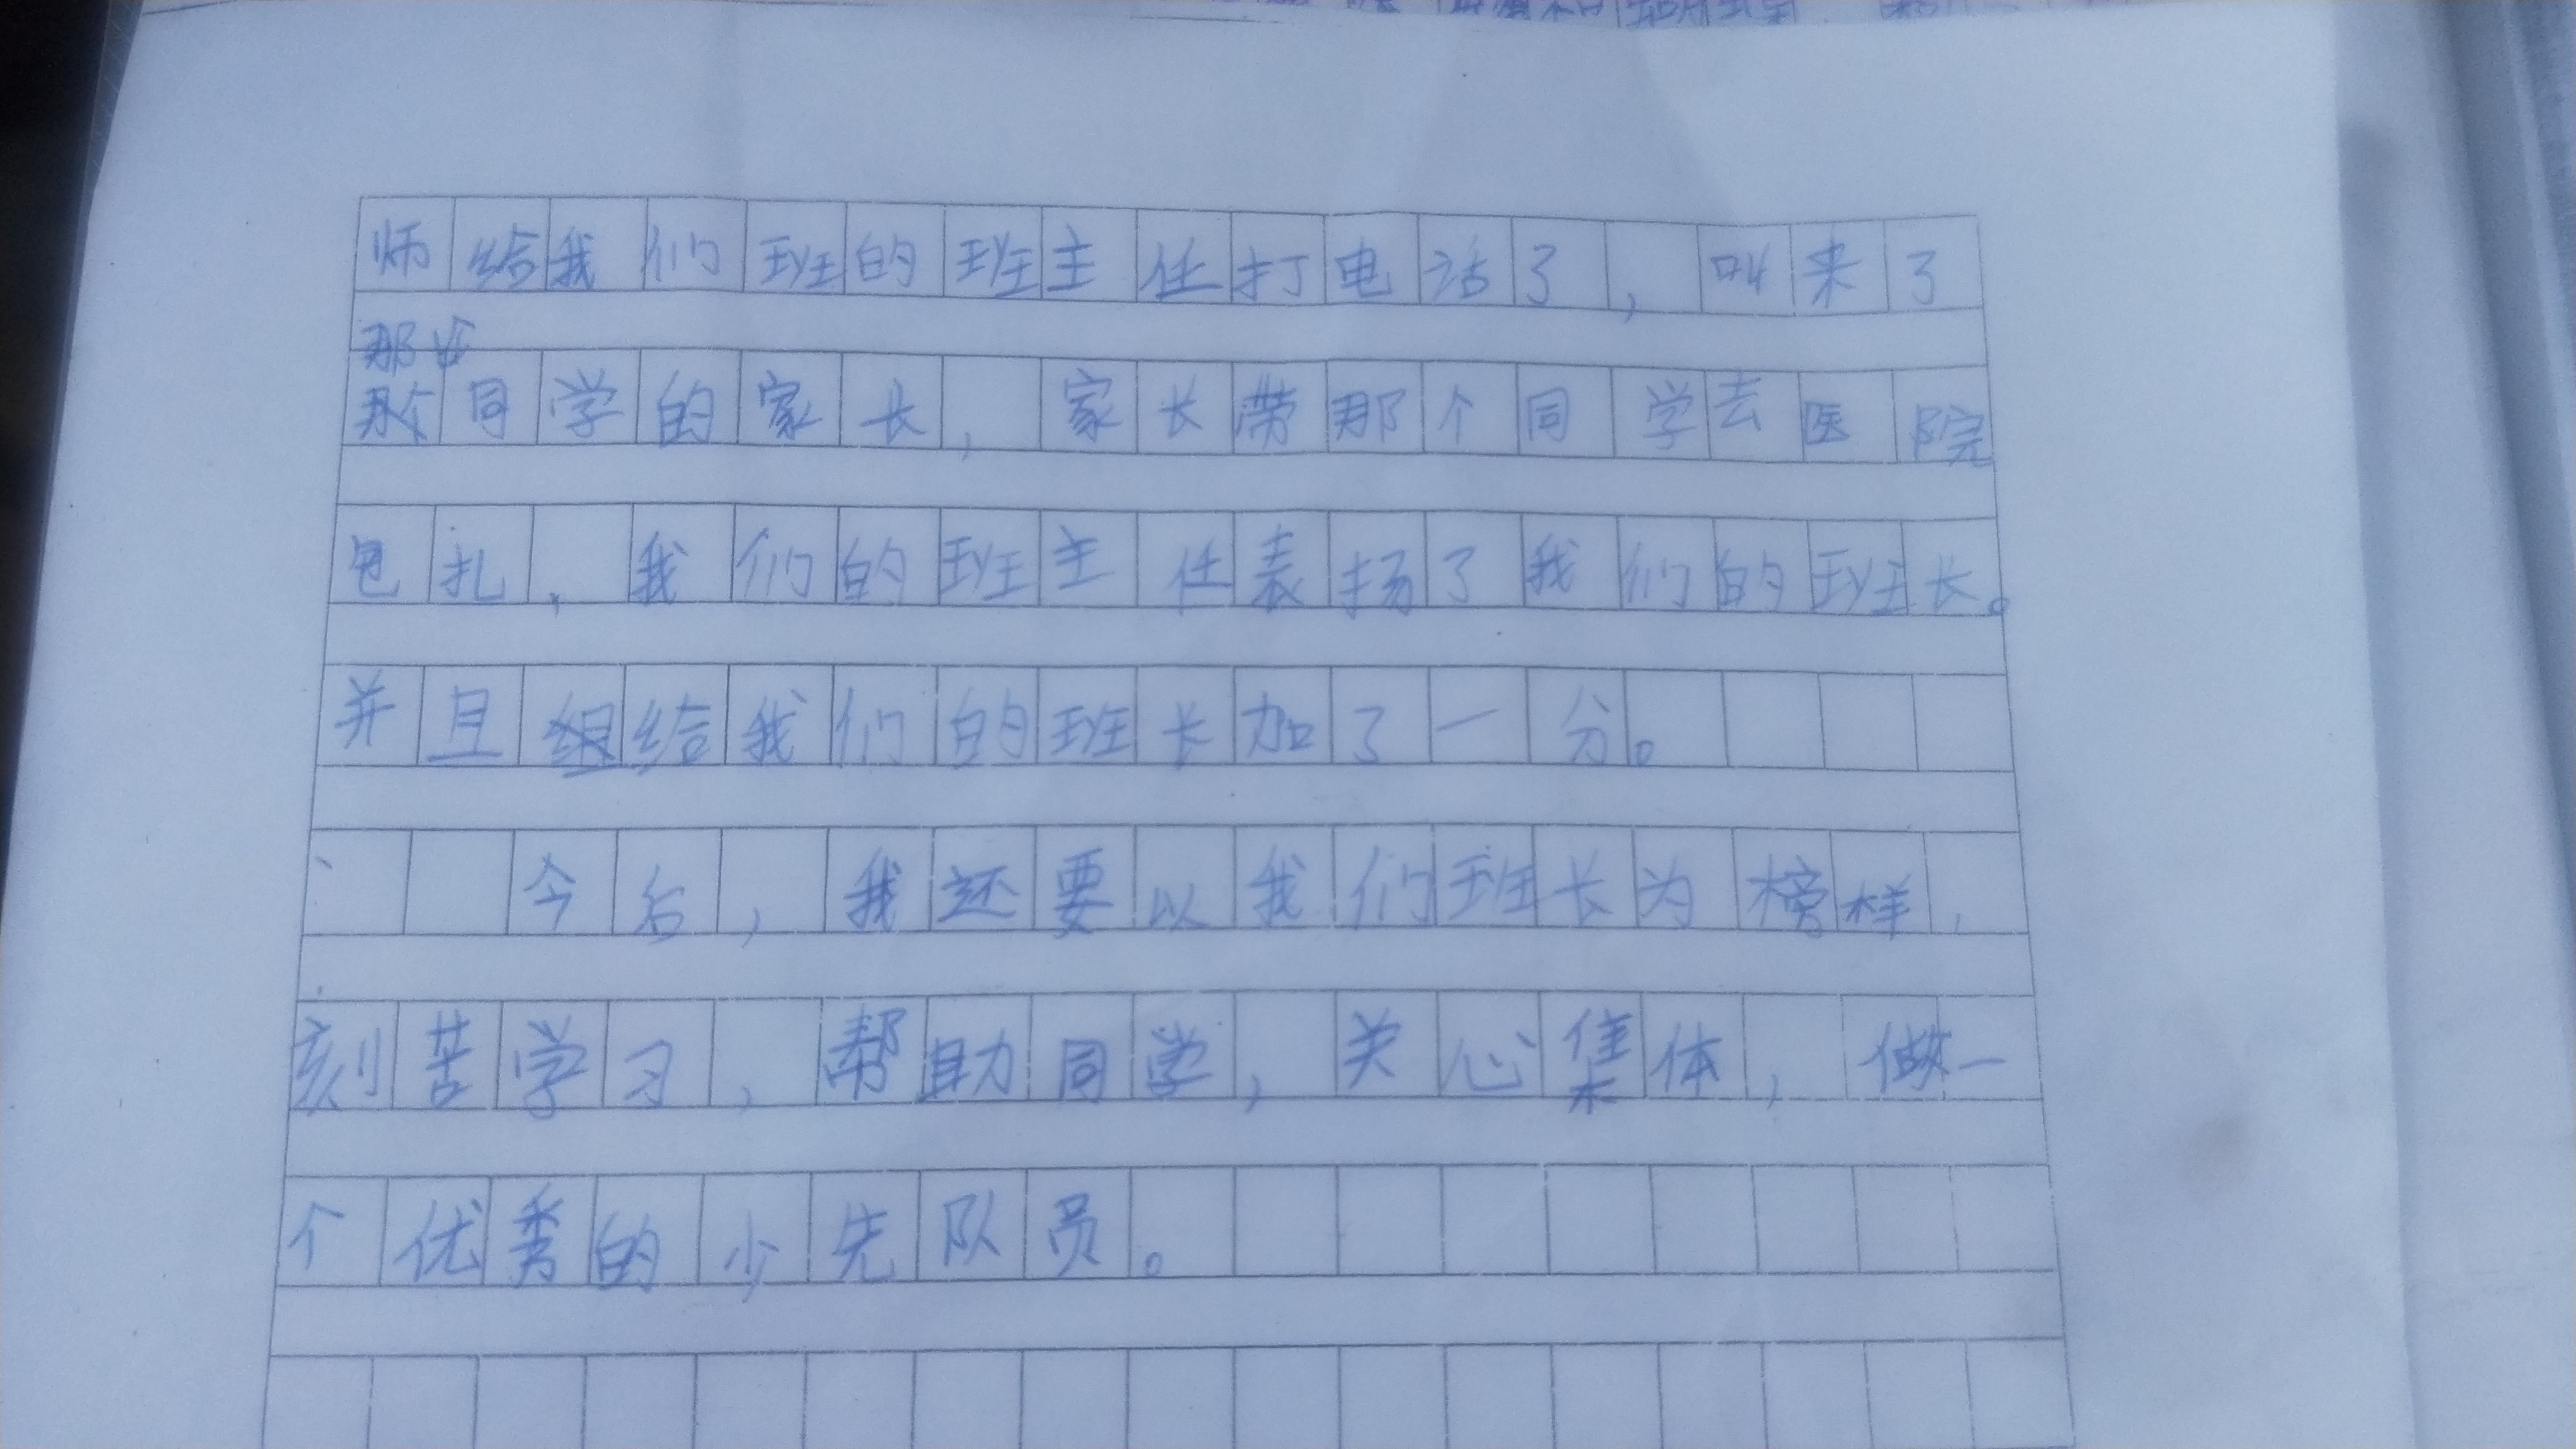 师给我们班的班主任打电话了，叫来了
那个同学的家长，家长带那个同学去医院
包扎，我们的班主任表扬了我们的班长。
并且给我们的班长加了一分。
今后，我还要以我们班长为榜样，
刻苦学习，帮助同学，关心集体，做一
个优秀的少先队员。